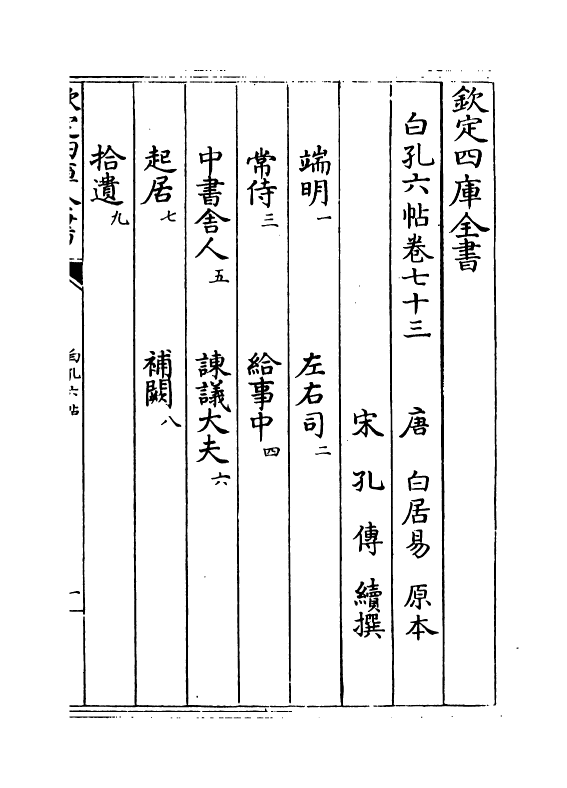 欽定四庫全書
白孔六帖卷七十三　唐　白居易　原本
宋　孔　傳　續撰
端明一　左右司二
常侍三　給事中四
中書舍人五　諌議大夫六
起居七　補闕八
拾遺九
白孔六帖
一